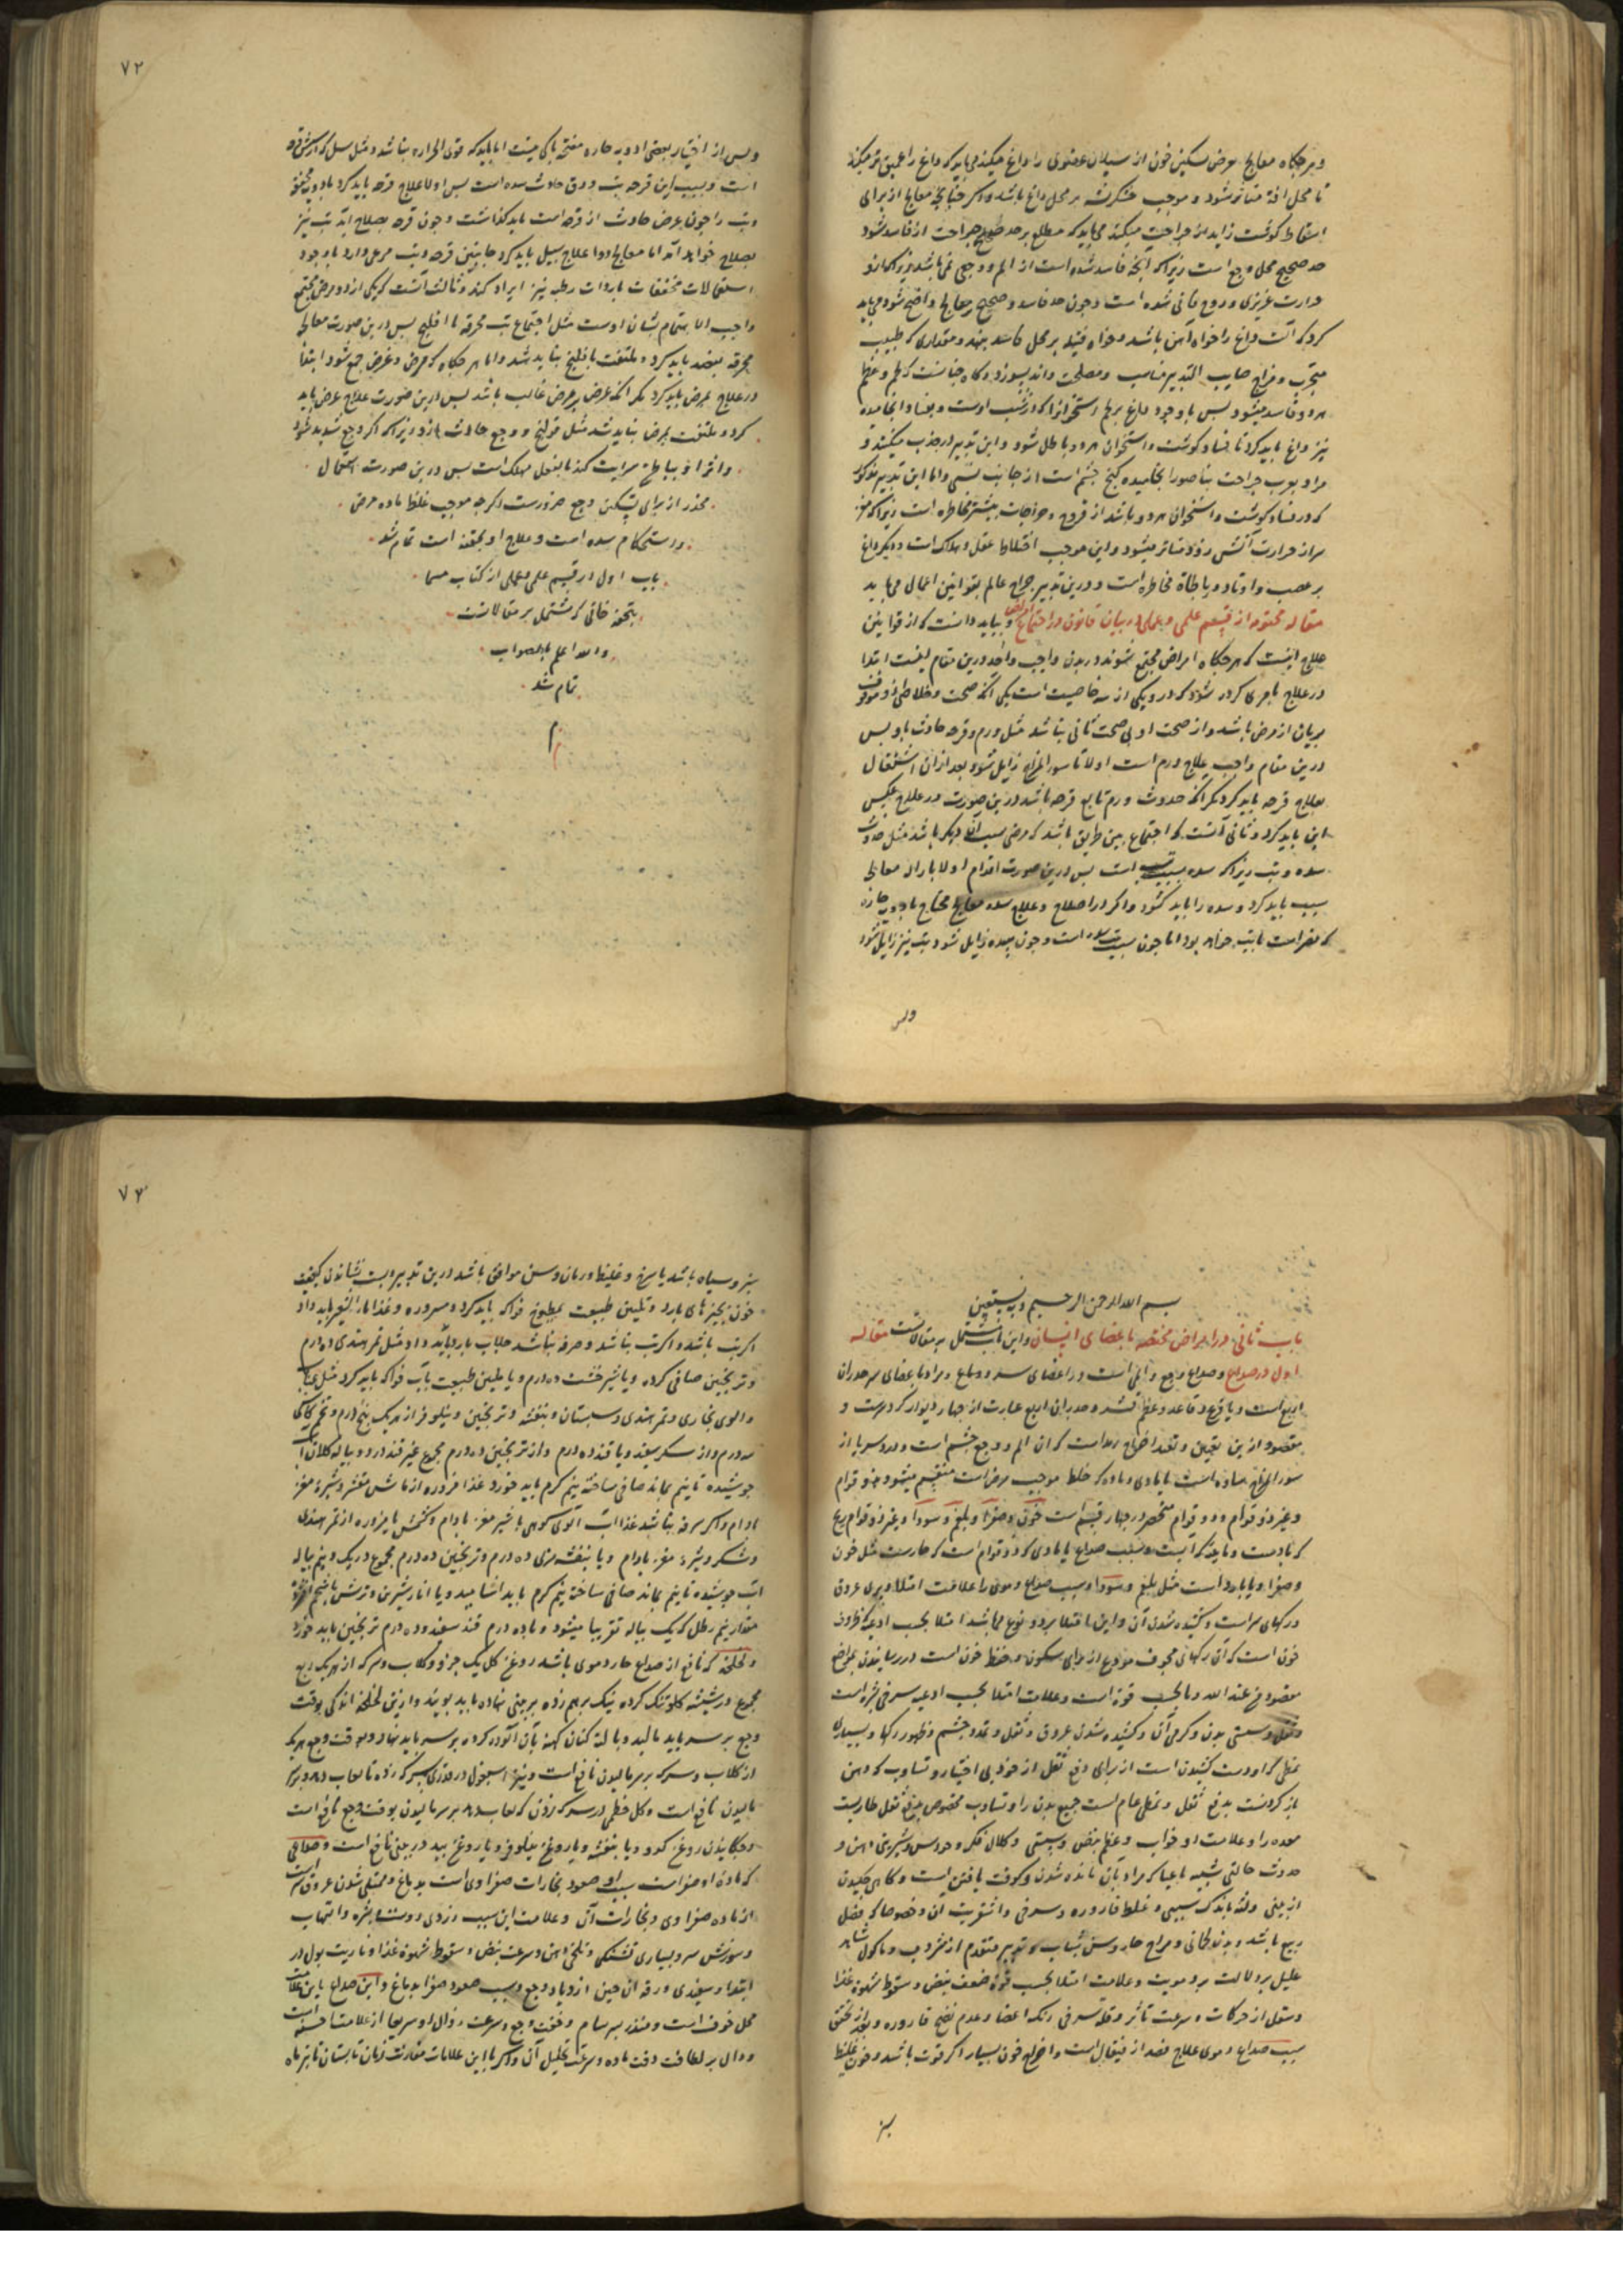 و هر جكاه معالج بغرض تسكين خون از سيلان عضوى را داغ ميكند مى بايد كه داغ را عميق تر ميكند
تا محل افة متاثر شود و موجب خشكريشه بر محل داغ باشد و اكر چنانچه معالج از براى
اسقاط كوشت زايد از جراحت ميكند مى بايد كه مطلع بر حد صحيح جراحت از فاسد شود
حد صحيح محل وجع است زيراكه انچه فاسد شده است از الم و وجع نمى باشد
حرارت غريزى و روح فانى شده است و چون حد فاسد و صحيح بر معالج واضح شود مى بايد
كرد كه الت داغ را خواه آهن باشد و خواه فتيله بر محل فاسد بنهد و مقدارى كه طبيب
مجرب و مزاج صايب التدبير مناسب و مصلحت داند بسوزد و كاه چنانست كه لحم و عظم
هر دو فاسد ميشود پس باوجود داغ بر لحم استخوانرا كه در تحت اوست و بفساد انجاميده
نيز داغ بايد كرد تا فساد كوشت و استخوان هر دو باطل شود و اين تدبير در جذب ميكنند و
مراد بعرب جراحت بناصور انجاميده كنج چشم است از جانب بينى و اما اين تدبير مذكور
كه در فساد كوشت و استخوان هر دو باشد از قروح و جراحات بيشتر مخاطره است زيراكه مغز
سر از حرارت آتش زود متاثر ميشود و اين موجب اختلاط عقل و هلاك است و ديكر داغ
بر عصب و اوتاد و رباطات مخاطره است و درين تدبير جراح عالم بقوانين اعمال مى بايد
مقاله مختومه از قسم علمى و عملى در بيان قانون در اجتماع امراض و بيايد دانست كه از قوانين
علاج اينست كه هر جكاه امراض مجتمع شوند در بدن واجب و احق درين مقام انست ابتدا
در علاج بامرى كرده شود كه درو يكى از سه خاصيت است يكى آنكه صحت و خلاصى او موقوف
بريان از مرض باشد و از صحت اولى صحت ثانى بباشد مثل ورم و قرحه حادث با و پس
درين مقام واجب علاج ورم است اولا تا سوء المزاج زايل شود بعد ازان اشتغال
بعلاج قرحه بايد كرد مكر انكه حدوث ورم تابع قرحه باشد درين صورت در علاج بعكس
اين بايد كرد و ثانى آنست كه اجتماع بدين طريق باشد كه مرضى سبب ديكر باشد مثل حدوث
سده و تب زيراكه سده سبب تب است پس درين صورت اقدام اولا بازاله معالج
سبب بايد كرد و سده را بايد كشود و اكر در اصلاح و علاج سده معالج محتاج بادويه حاره
كه مضر است با تب خواهد بود اما چون سبب تب سده است و چون سده زايل شود تب نيز زايل شود
وپس
٧٢
و پس از اختيار بعضى ادويه حاره مفتحه باكى نيست اما بايد كه قوى الحراره نباشد و مثل سل كه از شش قرحه
است و بسبب اين قرحه تب و دق حادث شده است پس اولا علاج قرحه بايد كرد بادويه مجففه
و تب را چون عرض حادث از قرحه است بايد كذاشت و چون قرحه بصلاح آيد تب نيز
بصلاح خواهد آمد اما معالج دوا علاج سبيل بايد كرد جانبين قرحه و تب مرعى دارد باوجود
استعمالات مجففات باردات رطبه نيز ايراد كند و ثالث آنست كه يكى ازدو مرض مجتمع
واجب الاهتمام بشان اوست مثل اجتماع تب محرقه با فالج پس درين صورت معالجه
محرقه بفصد بايد كرد و ملتفت بفالج نبايد شد و اما هر جكاه كه مرض و عرض جمع شود ابتدا
در علاج بمرض بايد كرد مكر انكه عرض بر مرض غالب باشد پس درين صورت علاج عرض بايد
كرد و ملتفت بمرض نبايد شد مثل قولنج و وجع حادث ازو زيراكه اكر وجع شديد شود
و اثر او بباطن سرايت كند بالفعل مهلك است پس درين صورت استعمال
مخدر از براى تسكين وجع ضرورست اكرچه موجب غلظ ماده مرض
و استحكام سده است و علاج او بحقنه است تمام شد
باب اول از قسم علمى و عملى از كتاب مسما
بتحفه خانى كه مشتمل بر مقالاتست
والله اعلم بالصواب
تمام شد
م
بسم الله الرحمن الرحيم و به نستعين
باب ثانى در امراض مختصه باعضاى انسان و اين باب مشتمل بر مقالاتست مقاله
اول در صداع و صداع وجع و المى است در اعضاى سر و دماغ و مراد باعضاى سر جدران
اربع است و يافوخ و قاعده و عظم قشر و جدران اربع عبارت از چهار ديوار كرد سرست و
مقصود ازين تعيين و تعدد اخراج رمد است كه ان الم و وجع چشم است و درد سر يا از
سوء المزاج ساده است يا مادى و ماده كه خلط موجب مرض است منقسم ميشود بذو قوام
و غير ذو قوام و ذو قوام منحصر در چهار قسم است خون و صفرا و بلغم و سودا و غير ذو قوام ريح
كه بادست و مائيه كه آبست و سبب صداع يا مادى كه ذو قوام است كه حارست مثل خون
و صفرا و يا بارد است مثل بلغم و سودا و سبب صداع دموى را علامت امتلا و پرى عروق
در كهاى سر است و كشيده شدن آن و اين امتلا بر دو نوع مى باشد امتلا بحسب ادعيه كه ظروف
خون است كه آن ركهاى مجوف موضوع از براى سكون و حفظ خون است در رسانيدن بمواضع
مقصوده عند الله و يا بحسب قوة است و علامت امتلا بحسب ادعيه سرخى بشره است
و ثقل و سستى بدن و كرمى آن و كشيده شدن عروق و ثقل و تمدد چشم و ظهور ركها و بسيارى
تمطى كه اودست كشيدن است از براى دفع ثقل از خود بى اختيار و تثاوب كه دهن
باز كردنست بدفع ثقل و تمطى عام است جميع بدن را و تثاوب مخصوص بدفع ثقل طاريست
معده را و علامت او خواب و عظم نبض و سستى و كلال فكر و حواس و شيرينى دهن و
حدوث حالتى شبيه باعيا كه مراد بآن مانده شدن و كوفت يافتن است و كاهى چكيدن
از بينى و لثه باندك سببى و غلظ قاروره و سرخى و اشقريت آن و خصوصا كه فصل
ربيع باشد و بدن لحمانى و مزاج حار و سن شباب و تدبير متقدم از مشروب و ماكول شاهد
عليل بر دلالت بر دمويت و علامت امتلا بحسب قوة ضعف نبض و سقوط شهوة غذا
و ستوط از حركات و سرعت تاثر و قلة سرخى رنك اعضا و عدم نضج قاروره و بعد از تحقق
سبب صداع دموى علاج فصد از قيفال است و اخراج خون بسيار اكر قوت باشد و خون غليظ
بز
٧٣
سبز و سياه باشد يا سرخ و غليظ و زمان و سن موافق باشد درين تدبير و پست نشاندن كيفيت
خون بچيزهاى بارد و تليين طبيعت بمطبوخ فواكه بايد كرد و مزوره و غذا ماء الشعير بايد داد
اكر تب باشد و اكر تب نباشد و صرفه نباشد جلاب بارد بايد داد مثل تمر هندى ده درم
و ترنجبين صافى كرده و يا شير خشت ده درم و يا تليين طبيعت بآب فواكه بايد كرد مثل عناب
و الوى بخارى و تمر هندى و سپستان و بنفشه و ترنجبين و نيلوفر از هر يك پنج درم و تخم كاسنى
سه درم و از سكر سفيد و يا قند ده درم و از ترنجبين ده درم مجموع غير قند در دو پياله كلان آب
جوشيده تا نيم بماند صافى ساخته نيم كرم بايد خورد و غذا مزوره از ماش مقشر و شيرهٔ مغز
بادام و اكر سرفه نباشد غذا آب آلوى كوهى با شير مغز بادام و كشمش يا مزوره از تمر هندى
و شكر و شيرهٔ مغز بادام و يا بنفشه مربى ده درم و ترنجبين ده درم مجموع در يك و نيم پياله
آب جوشيده تا نيم بماند صافى ساخته نيم كرم بايد اشاميد و يا انار شيرين و ترش با شحم افشرده
مقدار نيم رطل كه يك پياله تقريبا ميشود و با ده درم قند سفيد و ده درم ترنجبين بايد خورد
و لخلخه كه نافع از صداع حار دموى باشد روغن كل يك جزو و كلاب و سركه از هر يك ربع
مجموع در شيشه كلو تنك كرده نيك برهم زده بر بينى نهاده بايد بوئيد و ازين لخلخه اندكى بوقت
وجع بر سر بايد ماليد و يا لته كتان كهنه بآن آلوده كرده بر سر بايد نهاد و بوقت وجع هر يك
از كلاب و سركه بر سر ماليدن نافع است و نيز اسبغول در قدرى سركه زده تا لعاب دهد و بر سر
ماليدن نافع است و كل خطمى در سركه زدن كه لعاب دهد بر سر ماليدن بوقت وجع نافع است
و چكانيدن روغن كدو و يا بنفشه و يا روغن نيلوفر و يا روغن بيد در بينى نافع است و صداعى
كه ماده او صفراست سبب او صعود بخارات صفراوى است بدماغ و ممتلى شدن عروق سر است
از ماده صفراوى و بخارات آن و علامت اين سبب زردى و وسنت بشره و التهاب
و سوزش سر و بسيارى تشنكى و تلخى دهن و سرعت نبض و سقوط شهوة غذا و ناريت بول در
ابتدا و سفيدى و رقه ان حين ازدياد وجع و سبب صعود صفرا بدماغ و اين صداع باين علامت
محل خوف است و منذر بسرسام و خفت وجع و سرعت زوال او سريعا از علامت حسنه است
و دال بر لطافت و قت ماده و سرعت تحليل آن و اكر با اين علامات مقارنت زمان تابستان تا تيرماه